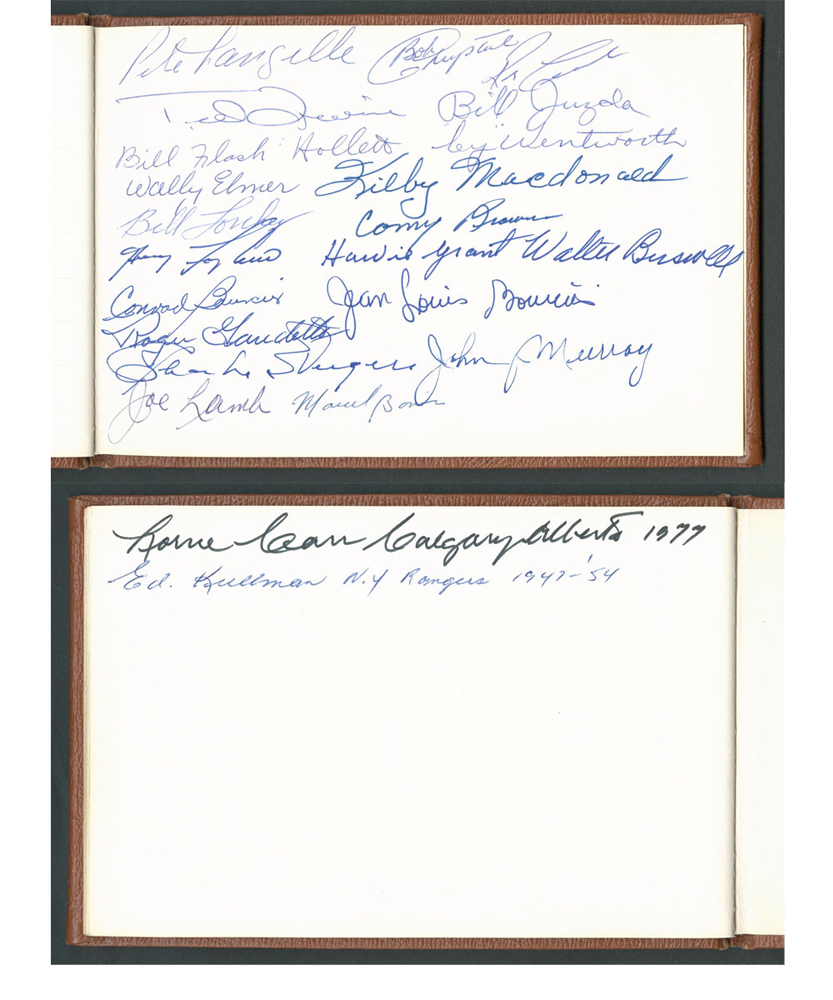 Pete Langelle Bob Chrystal
Bill Juzda
Bill Flash Hollett Cy Wentworth
Wally Elmer Kilby Macdonald
Bill Conny Brown
Howie Grant Walter Buswell
Conrad Bourcier Jean Louis Bourcier
Roger Gaudette
John J Murray
Joe Lamb Marcel Bonin
Lorne Carr Calgary Alberta 1977
Ed. Kullman N.Y Rangers 1947-'54